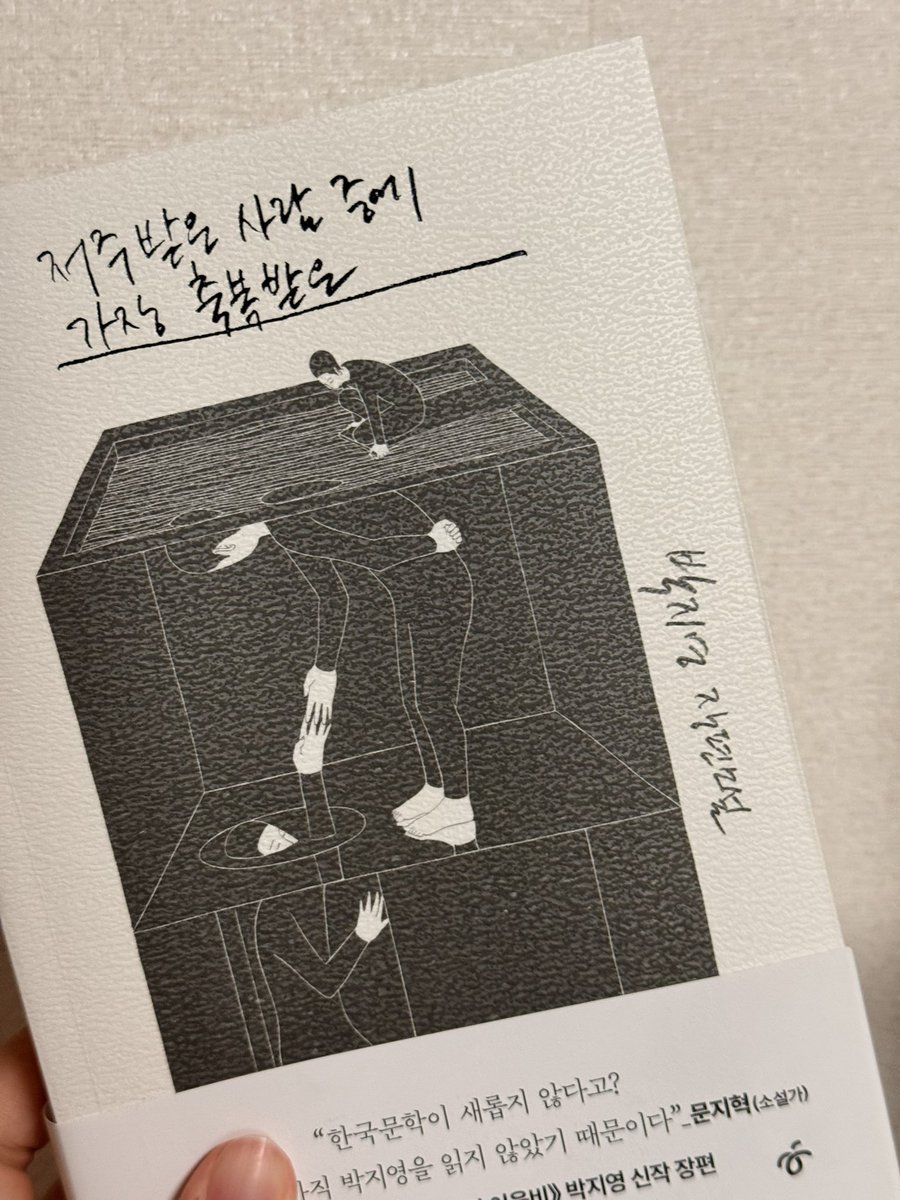 저주받은 사람 중에
가장 축복받은
박지영 장편소설
“한국문학이 새롭지 않다고?
아직 박지영을 읽지 않았기 때문이다”_문지혁(소설가)
박지영 신작 장편